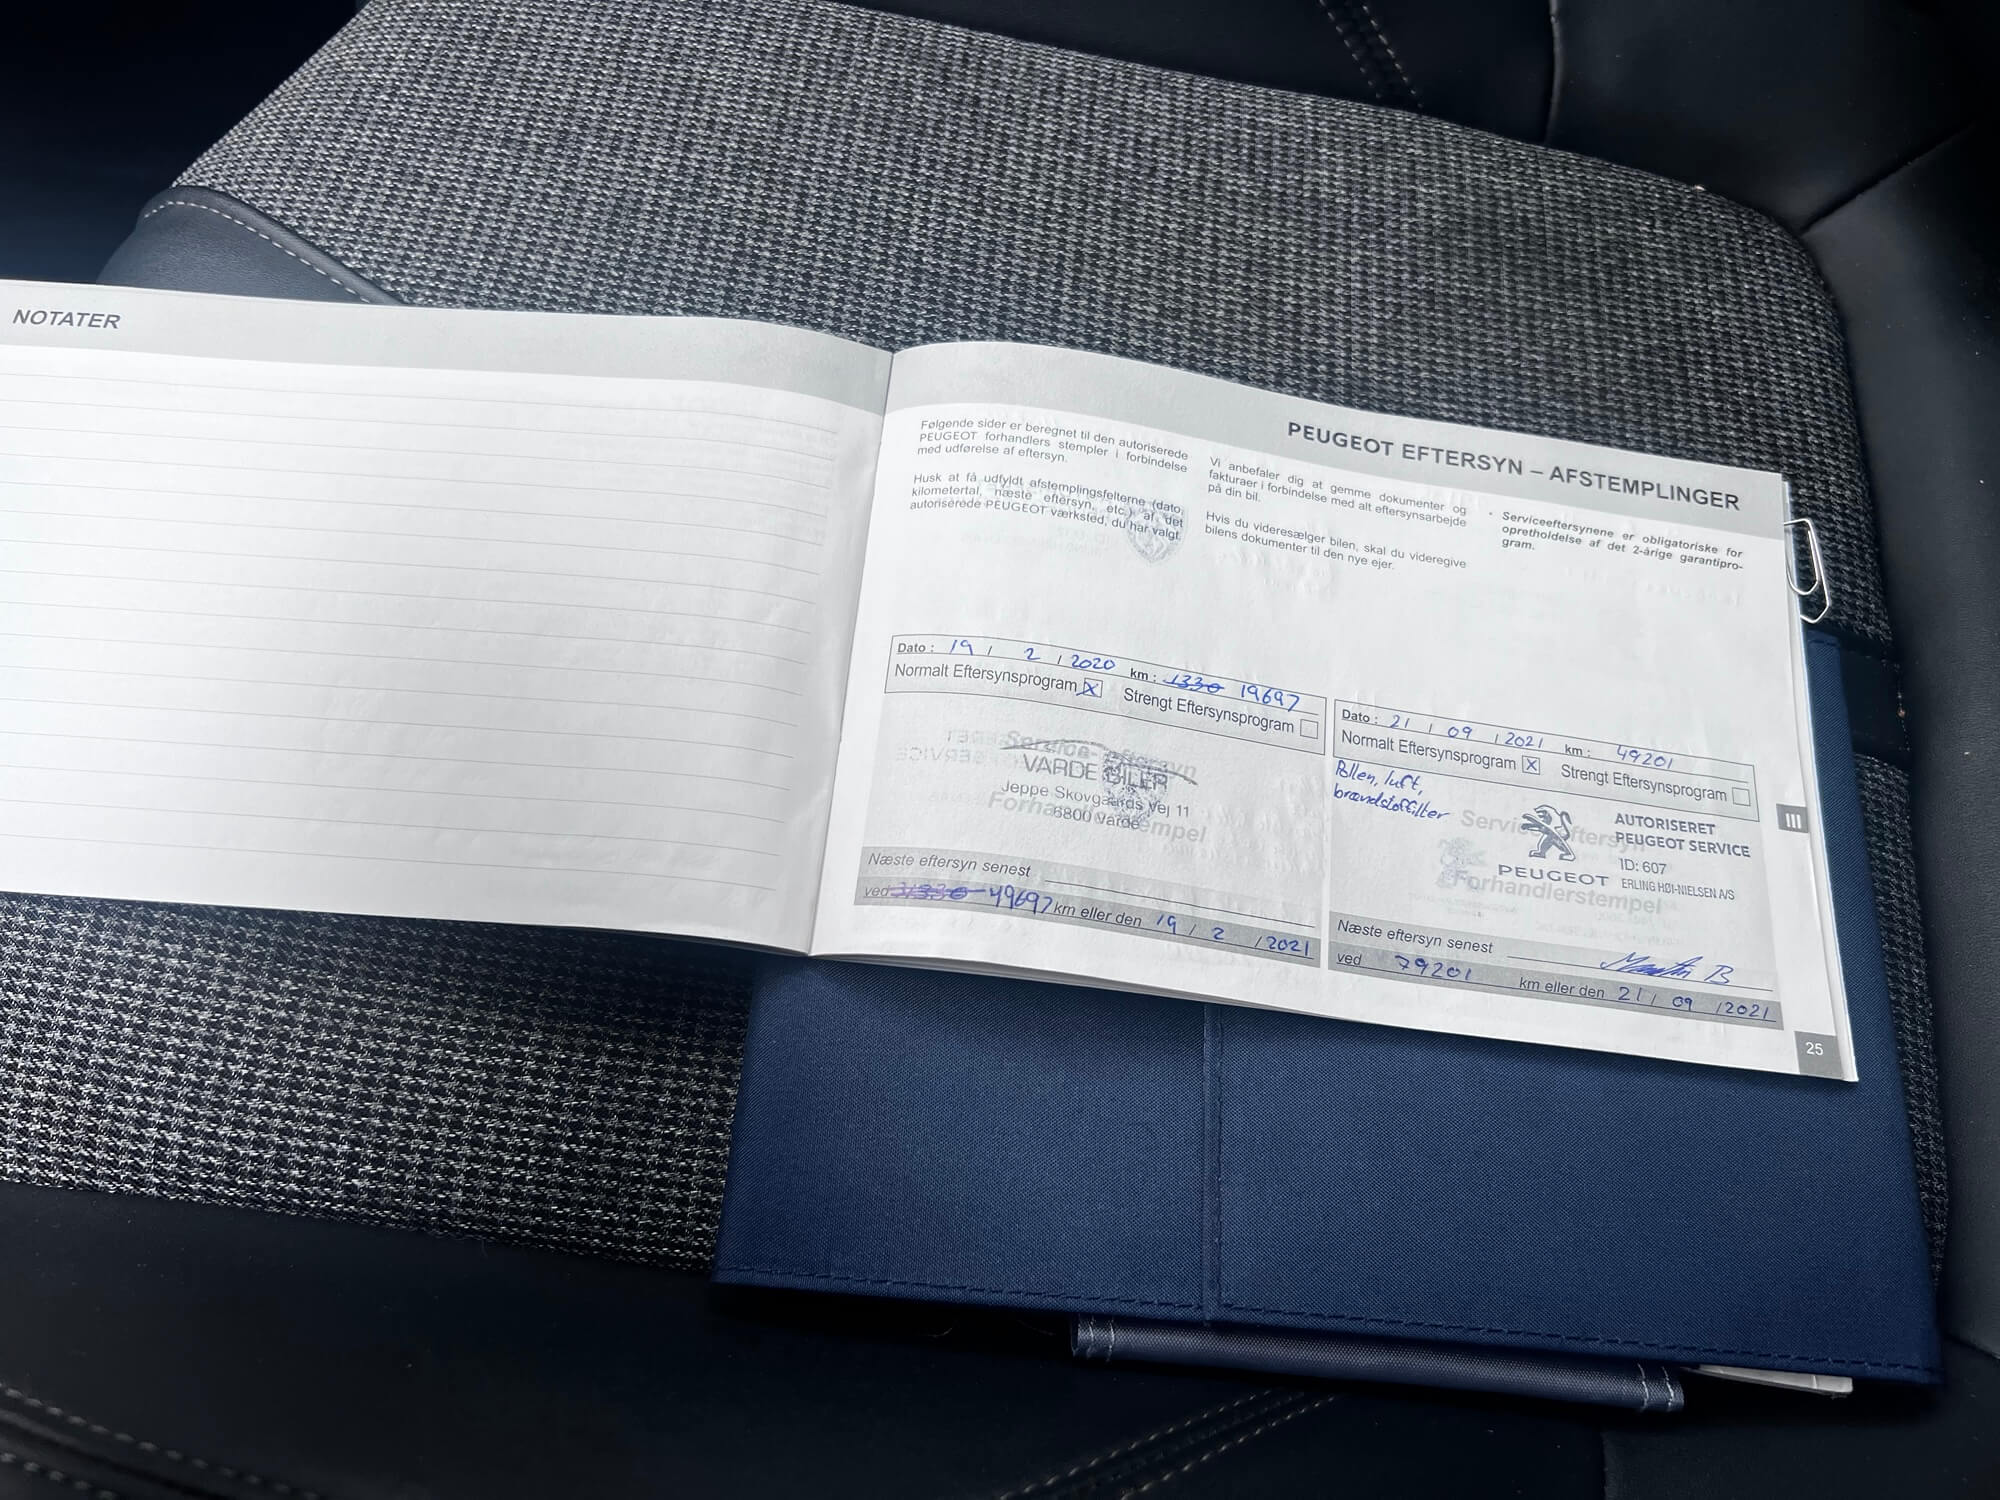 NOTATER
PEUGEOT EFTERSYN – AFSTEMPLINGER
Følgende sider er beregnet til den autoriserede
PEUGEOT forhandlers stempler i forbindelse
med udførelse af eftersyn.
Husk at få udfyldt afstemplingsfelterne (dato,
kilometertal, næste eftersyn, etc.) af det
autoriserede PEUGEOT værksted, du har valgt.
Vi anbefaler dig at gemme dokumenter og
fakturaer i forbindelse med alt eftersynsarbejde
på din bil.
Hvis du videresælger bilen, skal du videregive
bilens dokumenter til den nye ejer.
• Serviceeftersynene er obligatoriske for
opretholdelse af det 2-årige garantipro-
gram.
Dato : 19 / 2 / 2020 km : 1330 19697
Normalt Eftersynsprogram X Strengt Eftersynsprogram
Service-eftersyn
VARDE BILER
Jeppe Skovgaards Vej 11
6800 Varde
Forhandlerstempel
Næste eftersyn senest
ved 31330 49697 km eller den 19 / 2 / 2021
Dato : 21 / 09 / 2021 km : 49201
Normalt Eftersynsprogram X Strengt Eftersynsprogram
Pollen, luft,
brændstoffilter
Service-eftersyn
Forhandlerstempel
PEUGEOT
AUTORISERET
PEUGEOT SERVICE
ID: 607
ERLING HØI-NIELSEN A/S
Næste eftersyn senest
Martin B
ved 79201 km eller den 21 / 09 / 2021
III
25